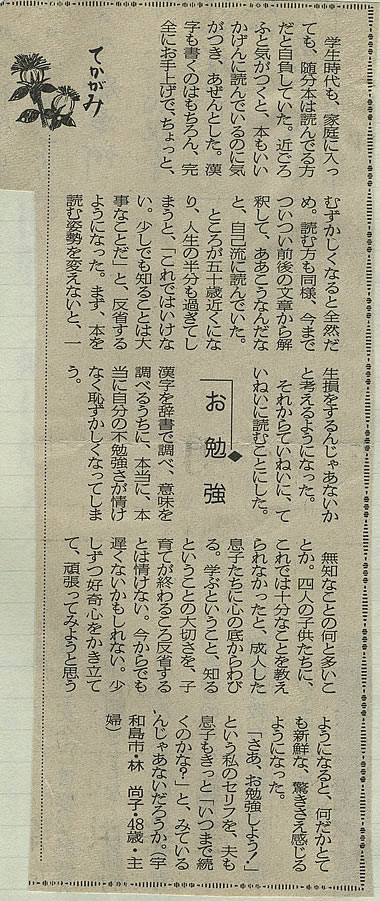 てかがみ
お勉強
学生時代も、家庭に入っ
ても、随分本は読んでる方
だと自負していた。近ごろ
ふと気がつくと、本もいい
かげんに読んでいるのに気
がつき、あぜんとした。漢
字も書くのはもちろん、完
全にお手上げで、ちょっと、
むずかしくなると全然だ
め。読む方も同様、今まで
ついつい前後の文章から解
釈して、ああこうなんだな
と、自己流に読んでいた。
ところが五十歳近くにな
り、人生の半分も過ぎてし
まうと、「これではいけな
い。少しでも知ることは大
事なことだ」と、反省する
ようになった。まず、本を
読む姿勢を変えないと、一
生損をするんじゃあないか
と考えるようになった。
それからていねいに、て
いねいに読むことにした。
漢字を辞書で調べ、意味を
調べるうちに、本当に、本
当に自分の不勉強さが情け
なく恥ずかしくなってしま
う。
無知なことの何と多いこ
とか。四人の子供たちに、
これでは十分なことを教え
られなかったと、成人した
息子たちに心の底からわび
る。学ぶということ、知る
ということの大切さを、子
育てが終わるころ反省する
とは情けない。今からでも
遅くないかもしれない。少
しずつ好奇心をかき立て
て、頑張ってみようと思う
ようになると、何だかとて
も新鮮な、驚きさえ感じる
ようになった。
「さあ、お勉強しよう!」
という私のセリフを、夫も
息子もきっと「いつまで続
くのかな?」と、みている
んじゃあないだろうか。(宇
和島市・林 尚子・48歳・主
婦)